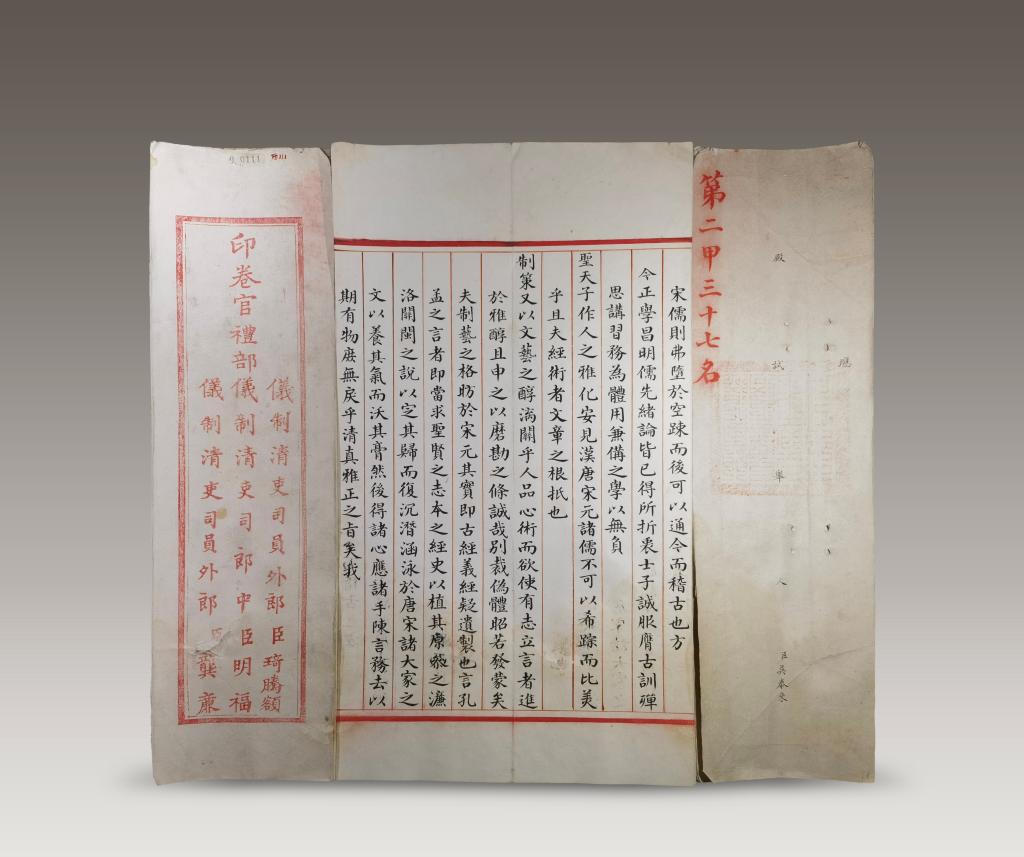 第二甲三十七名
應
殿試舉人臣吳春來
宋儒則弗墮於空踈而後可以通今而稽古也方
今正學昌明儒先緒論皆已得所折衷士子誠服膺古訓殫
思講習務為體用兼備之學以無負
聖天子作人之雅化安見漢唐宋元諸儒不可以希踪而比美
乎且夫經術者文章之根抵也
制策又以文藝之醇漓關乎人品心術而欲使有志立言者進
於雅醇且申之以磨勘之條誠哉別裁偽體昭若發蒙矣
夫制藝之格昉於宋元其實即古經義經疑遺製也言孔
孟之言者即當求聖賢之志本之經史以植其原㪚之濂
洛關閩之說以定其歸而復沉潛涵泳於唐宋諸大家之
文以養其氣而沃其膏然後得諸心應諸手陳言務去以
期有物庶無戾乎清真雅正之旨矣我
印卷官禮部
儀制清吏司員外郎臣琦騰額
儀制清吏司郎中臣明福
儀制清吏司員外郎臣龔廉
0111